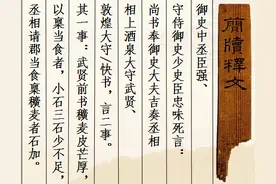 簡牘釋文
御史中丞臣强、
守侍御史少史臣忠昧死言：
尚书奉御史大夫吉奏丞相
相上酒泉大守武贤、
敦煌大守/快书，言二事。
其一事：武贤前书穬麦皮芒厚，
以稟当食者，小石三石少不足，
丞相请郡当食稟穬麦者石加。